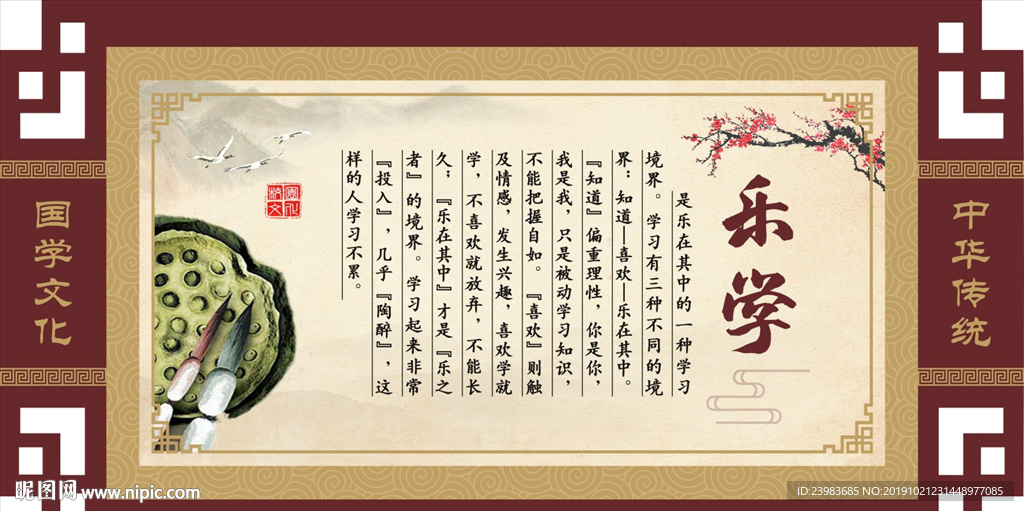 中华传统
乐学
是乐在其中的一种学习
境界。学习有三种不同的境
界：知道—喜欢—乐在其中。
『知道』偏重理性，你是你，
我是我，只是被动学习知识，
不能把握自如。『喜欢』则触
及情感，发生兴趣，喜欢学就
学，不喜欢就放弃，不能长
久；『乐在其中』才是『乐之
者』的境界。学习起来非常
『投入』，几乎『陶醉』，这
样的人学习不累。
国学文化
昵图网 www.nipic.com
ID:23983685 NO:20191021231448977085